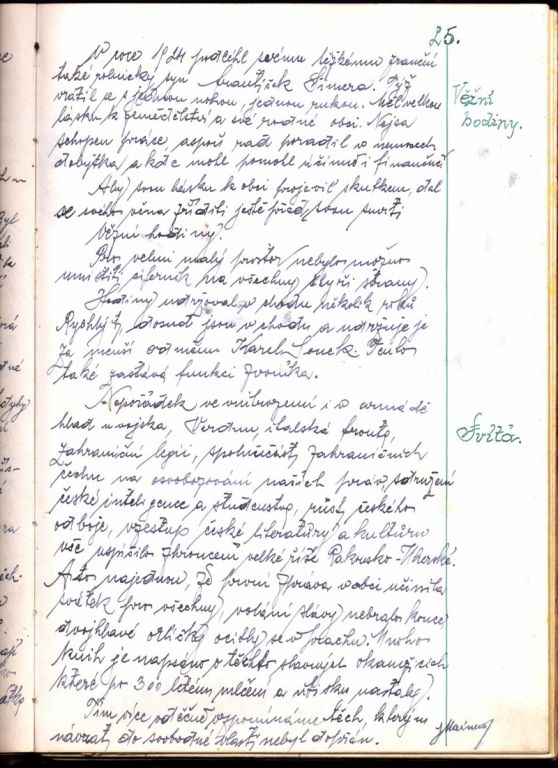 25.
V roce 1924 podlehl svému těžkému zranění
také rolnický syn František Šimera. Týž
vrátil se s jednou nohou, jednou rukou. Měl velkou
lásku k zemědělství a své rodné obci. Nejsa
schopen práce, aspoň rad poradil v nemocech
dobytka a kde mohl pomohl účinně i finančně
Věžní
hodiny.
Aby svou lásku k obci projevil skutkem, dal
se svého věna zříditi ještě před svou smrtí
věžní hodiny.
Pro velmi malý prostor nebylo možno
umístiti ciferník na všechny čtyři strany.
Hodiny udržoval v chodu několik roků
Rychlý, dosud jsou v chodu a udržuje je
za menší odměnu Karel Soucek. Tento
také zastává funkci zvoníka.
Nepořádek ve vnitrozemí i v armádě
hlad u vojska, Verdun, italská fronta,
Svítá.
zahraniční legií, spolčení zahraničních
čechů na osvobozování našich práv, sdružení
české inteligence a studenstva, růst českého
odboje, vzestup české literatury a kultury
vše uspíšilo zhroucení velké říše Rakousko-Uherské.
A to najednou, že první zpráva v obci učinila
svátek pro všechny, volání slávy nebralo konce
dvojhlavé orličky ocitly se v prachu. Mnoho
knih je napsáno o těchto slavných okamžicích
které po 300 letém mlčení a útisku nastaly.
Tím více vděčně vzpomínáme těch, kterým
návrat do svobodné vlasti nebyl dopřán.